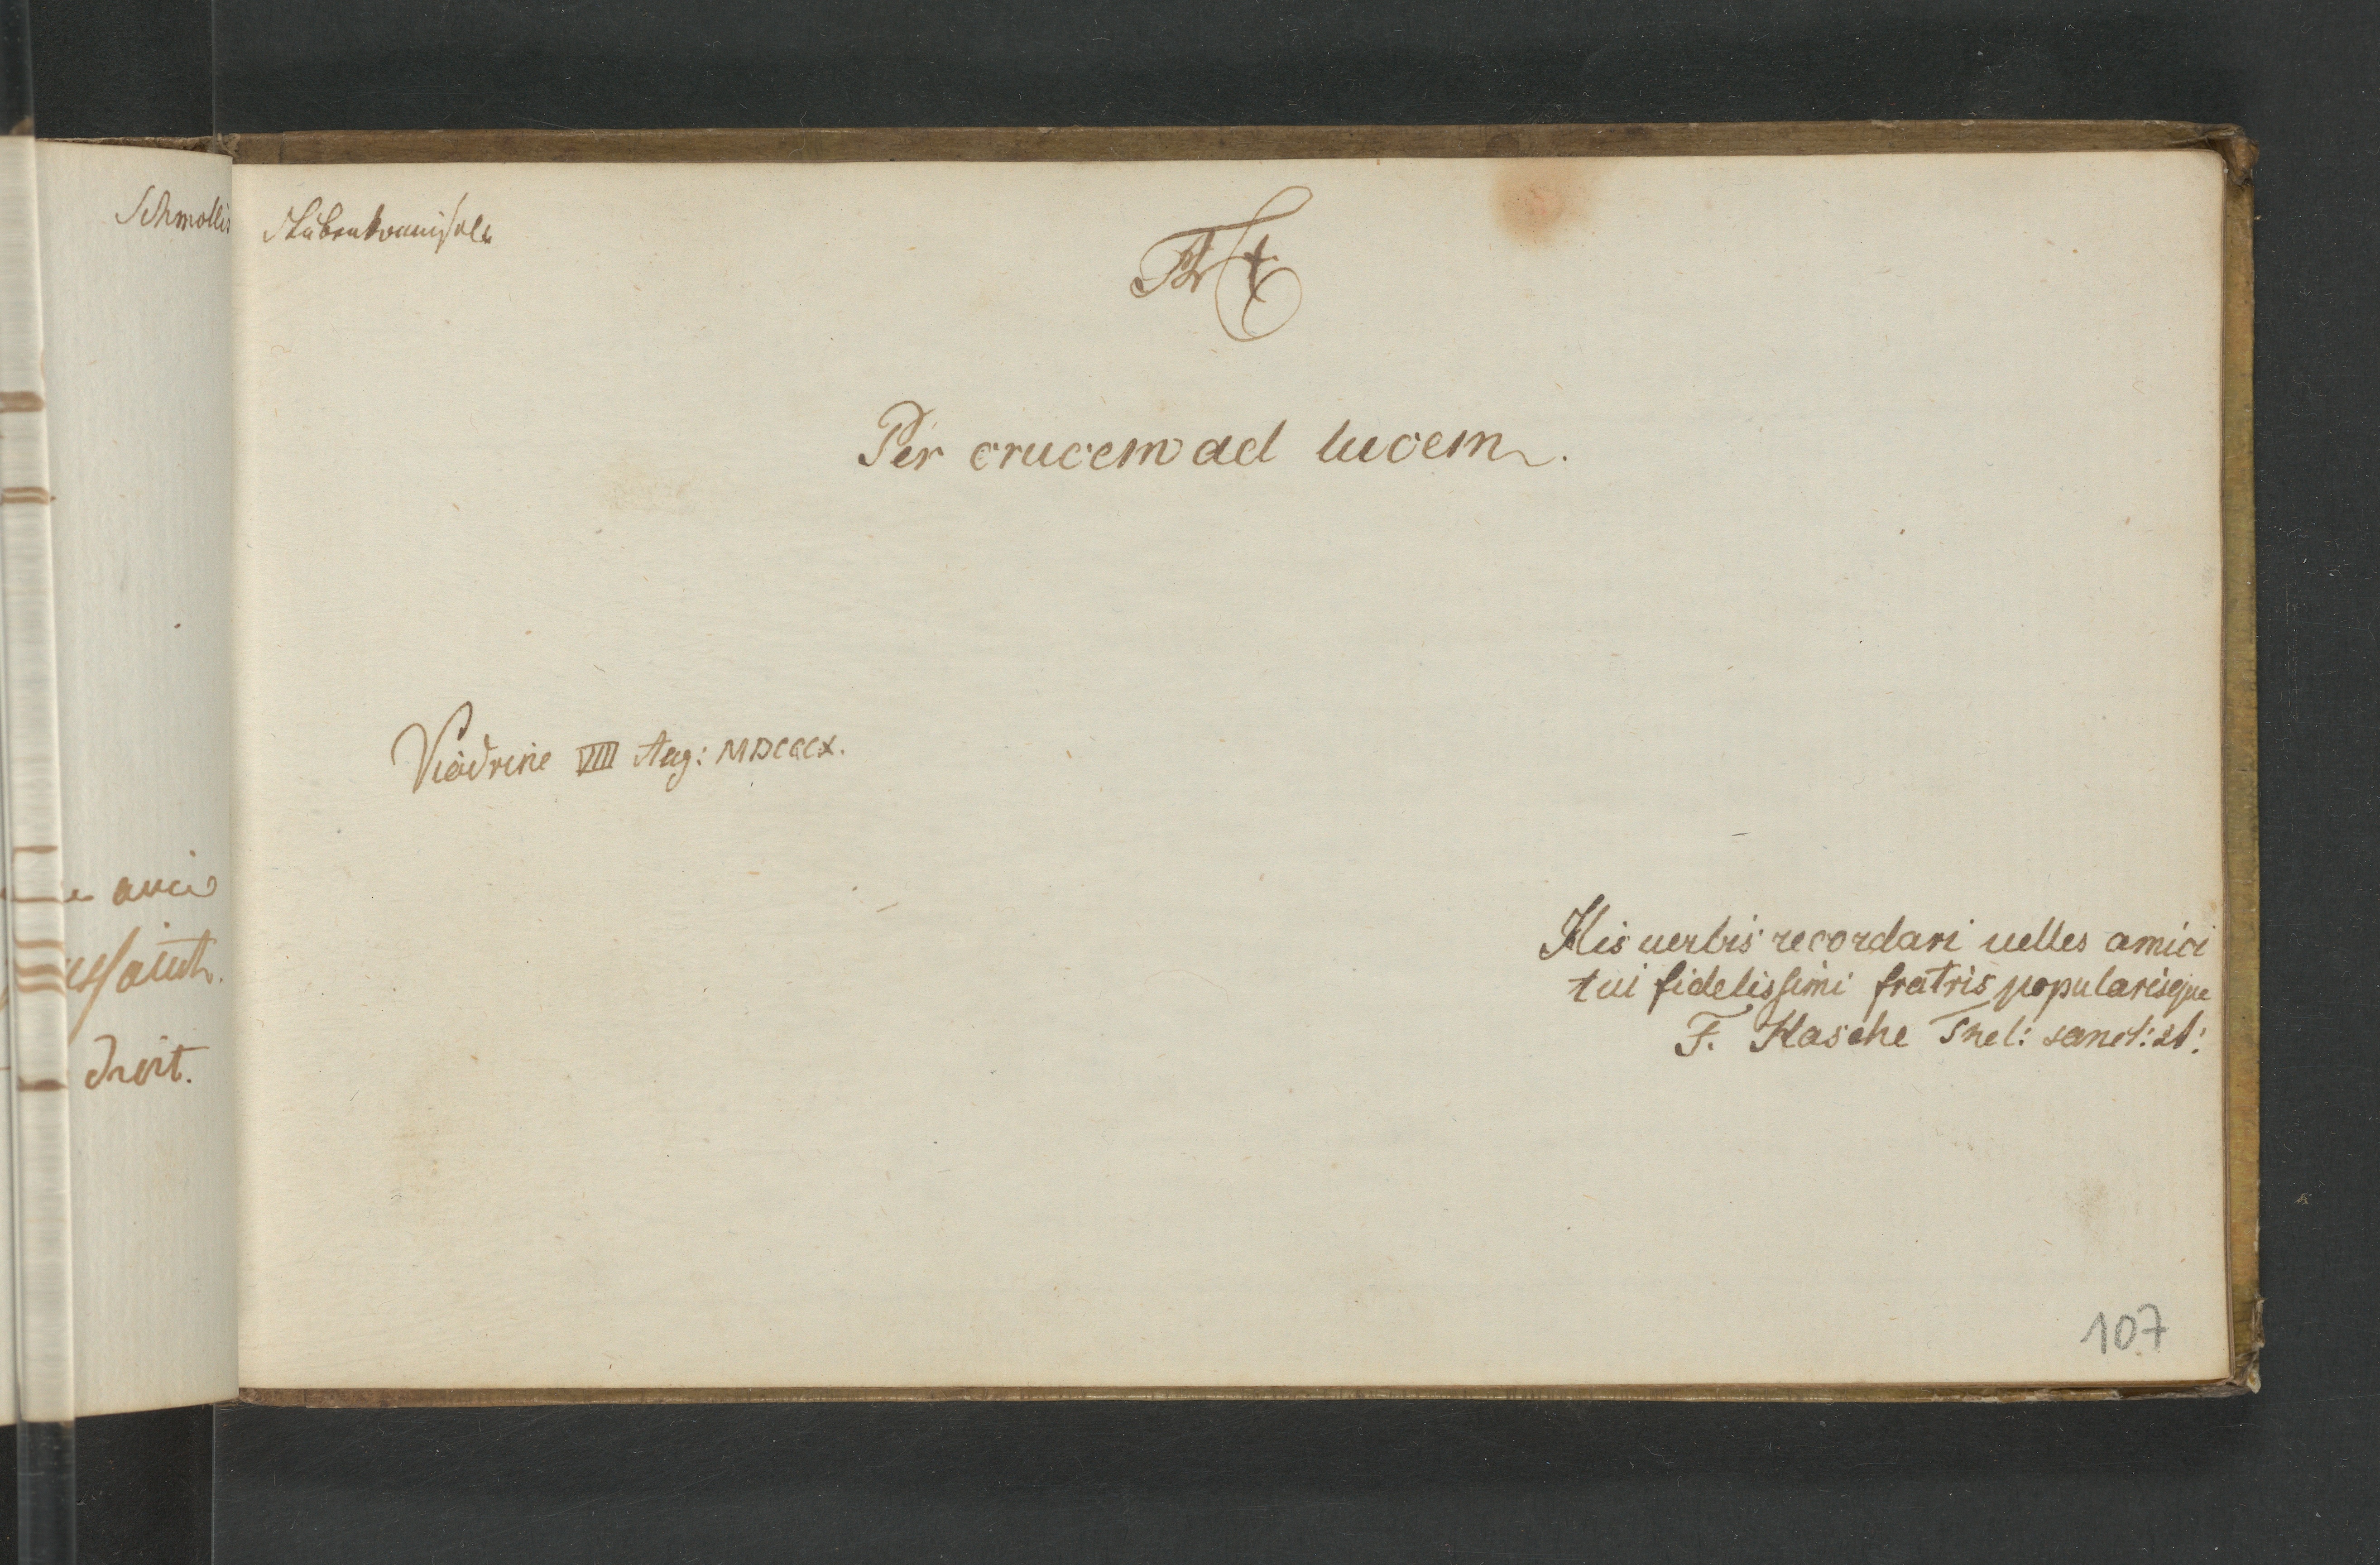 Schmollis
Per crucem ad lucem.
Viadrine VIII Aug: MDCCCX.
His uerbis recordari uelles amici
tui fidelissimi fratris popularisque
F. Hasche Thel: sanct: st:
droit.
107